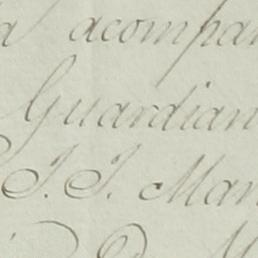 a acompa
Guardian
J. J. Man